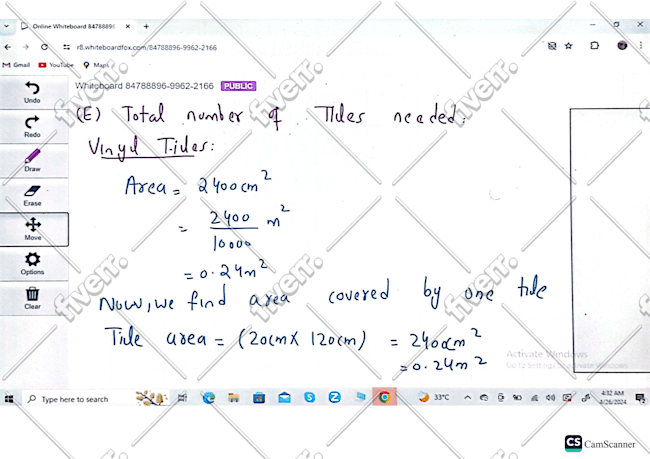 Online Whiteboard 84788896
r8.whiteboardfox.com/84788896-9962-2166
Gmail YouTube Maps
Whiteboard 84788896-9962-2166 PUBLIC
Undo
Redo
Draw
Erase
Move
Options
Clear
(E) Total number of Tiles needed:
Vinyl Tiles:
Area = 2400cm²
= 2400/10000 m²
= 0.24m²
Now, we find area covered by one tile
Tile area = (20cm X 120cm) = 2400cm²
= 0.24m²
Activate Windows
Go to Settings to activate Windows.
Type here to search
33°C
4:32 AM
4/26/2024
fiverr.
CS CamScanner